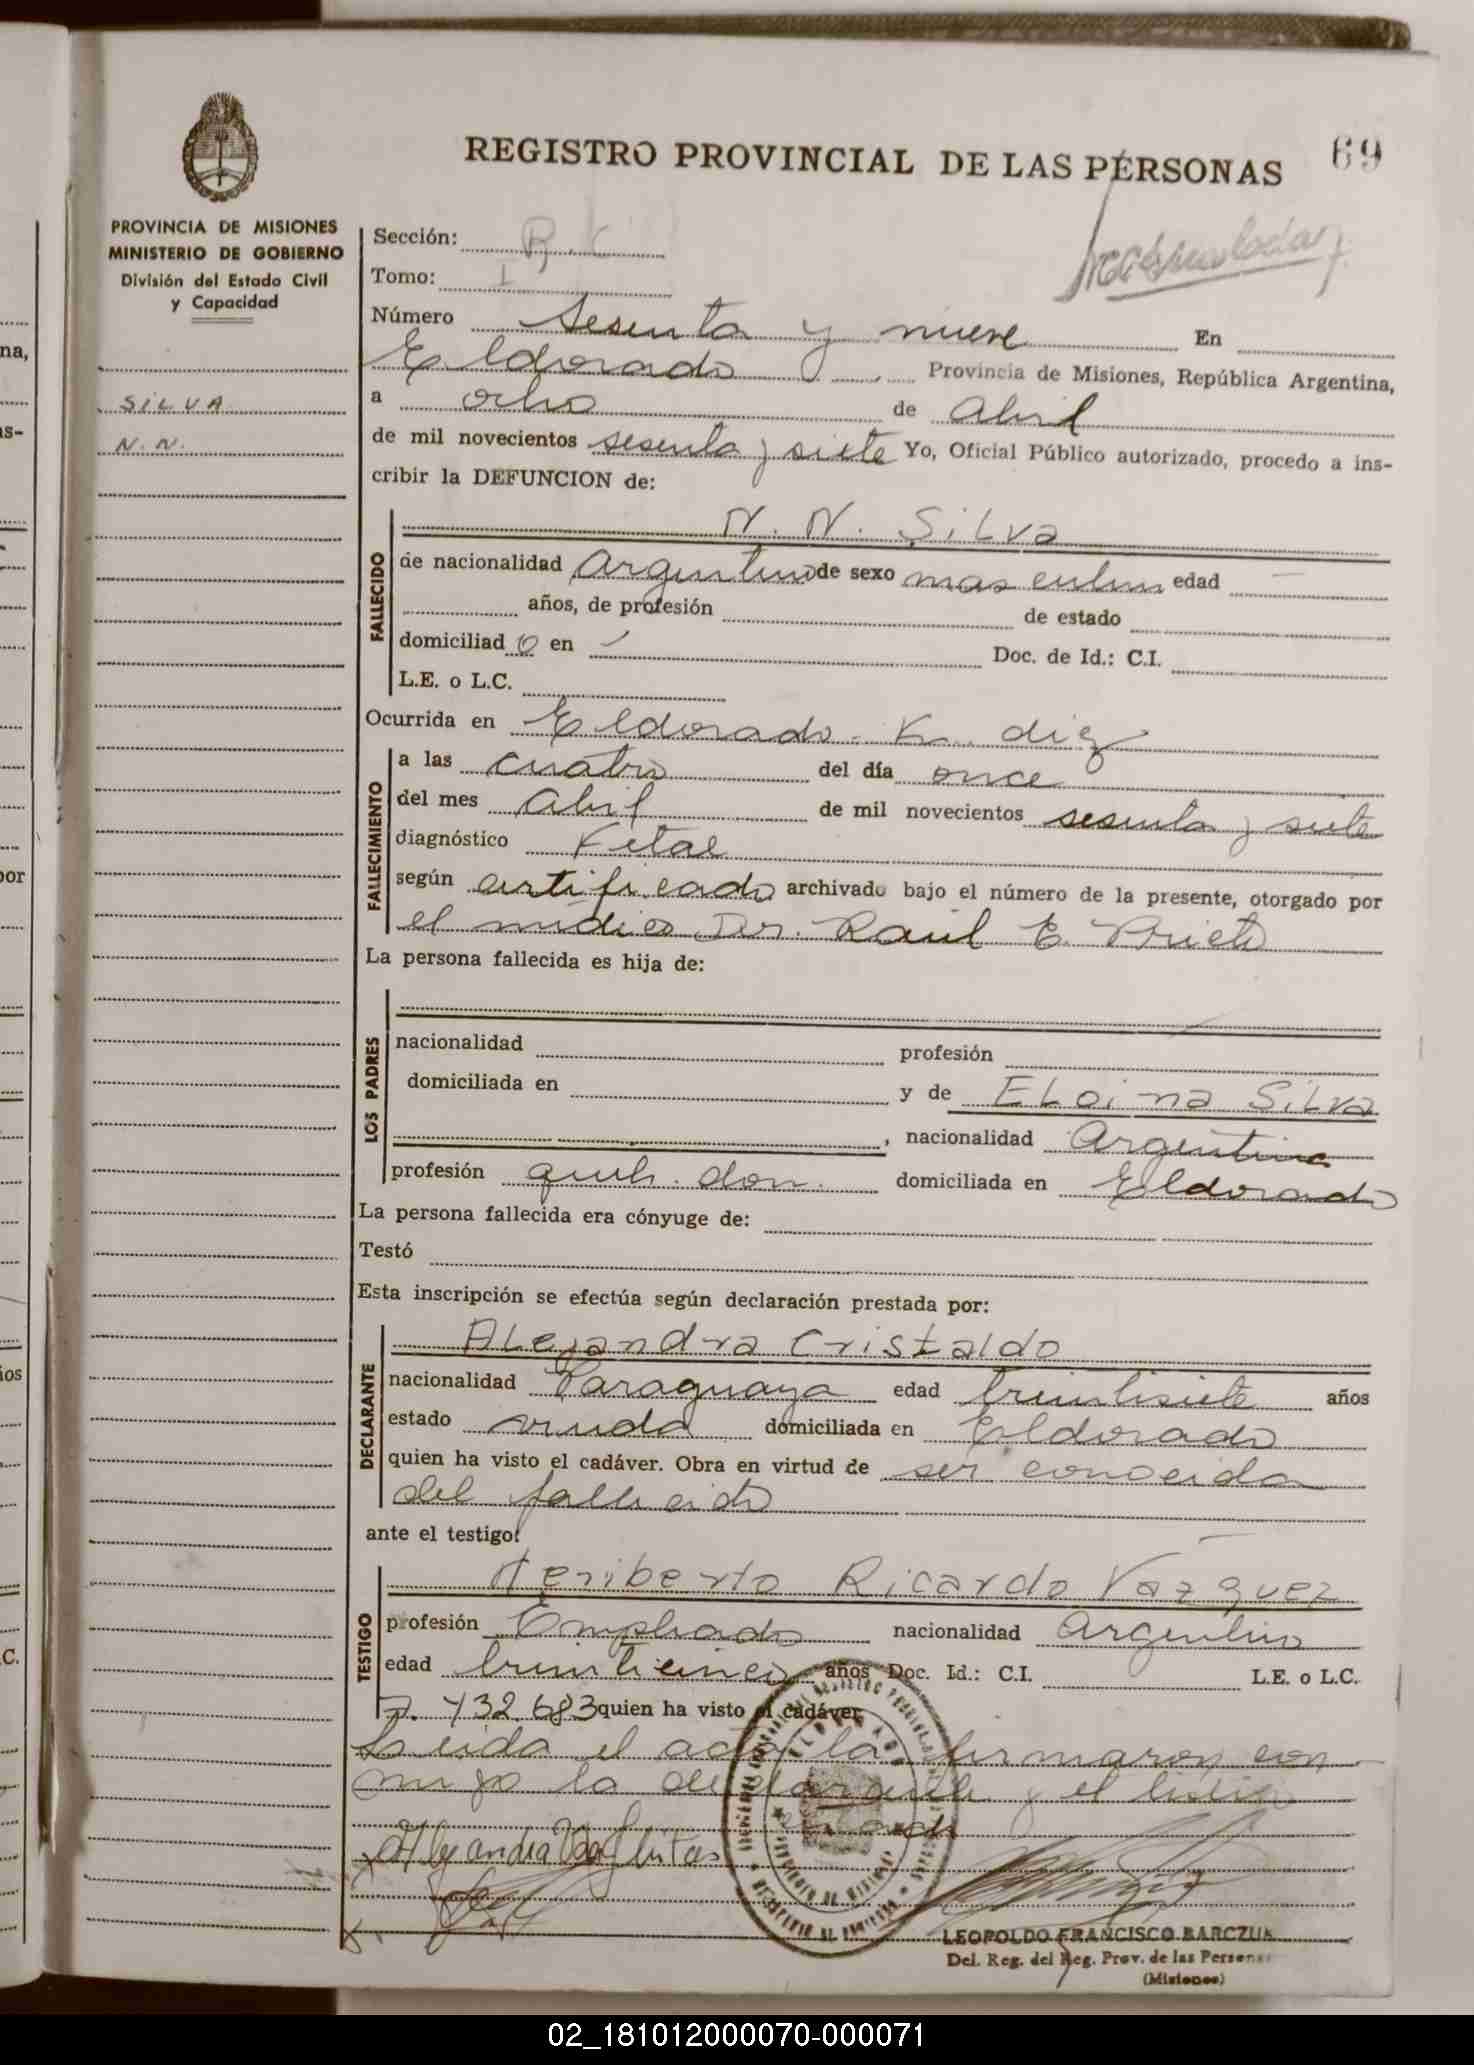 REGISTRO PROVINCIAL DE LAS PERSONAS 69
PROVINCIA DE MISIONES
MINISTERIO DE GOBIERNO
División del Estado Civil
y Capacidad
SILVA
N. N.
Sección: R. C
Tomo: I
Número Sesenta y nueve En
Eldorado Provincia de Misiones, República Argentina,
a ocho de Abril
de mil novecientos sesenta y siete Yo, Oficial Público autorizado, procedo a ins-
cribir la DEFUNCION de:
N. N. Silva
FALLECIDO
de nacionalidad Argentino de sexo masculino edad
años, de profesión de estado
domiciliad o en Doc. de Id.: C.I.
L.E. o L.C.
Ocurrida en Eldorado. K. diez
FALLECIMIENTO
a las cuatro del día once
del mes Abril de mil novecientos sesenta y siete
diagnóstico Fetal
según certificado archivado bajo el número de la presente, otorgado por
el médico Dr. Raúl E. Prieto
La persona fallecida es hija de:
LOS PADRES
nacionalidad profesión
domiciliada en y de Eloina Silva
, nacionalidad Argentina
profesión queh. dom. domiciliada en Eldorado
La persona fallecida era cónyuge de:
Testó
Esta inscripción se efectúa según declaración prestada por:
DECLARANTE
Alejandra Cristaldo
nacionalidad Paraguaya edad treintisiete años
estado viuda domiciliada en Eldorado
quien ha visto el cadáver. Obra en virtud de ser conocida
del fallecido
ante el testigo:
TESTIGO
Heriberto Ricardo Vazquez
profesión Empleado nacionalidad Argentino
edad treinticinco años Doc. Id.: C.I. L.E. o L.C.
7. 432.683 quien ha visto el cadáver
Leida el acta la firmaron con
migo la declarante y el testigo
LEOPOLDO FRANCISCO BARCZUK
Del. Reg. del Reg. Prov. de las Personas
(Misiones)
02_181012000070-000071